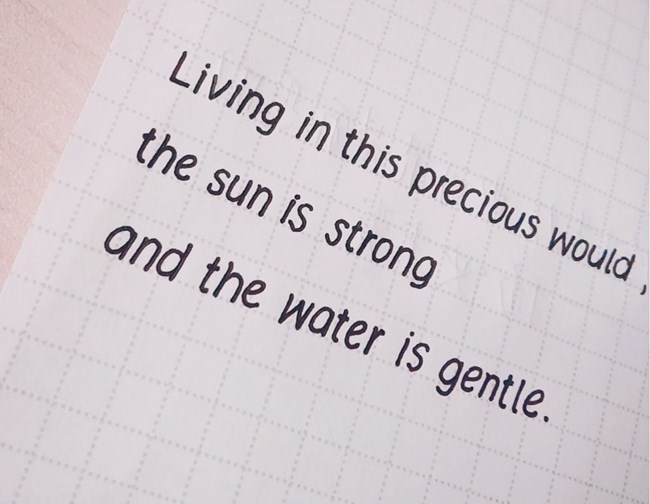 Living in this precious would,
the sun is strong
and the water is gentle.